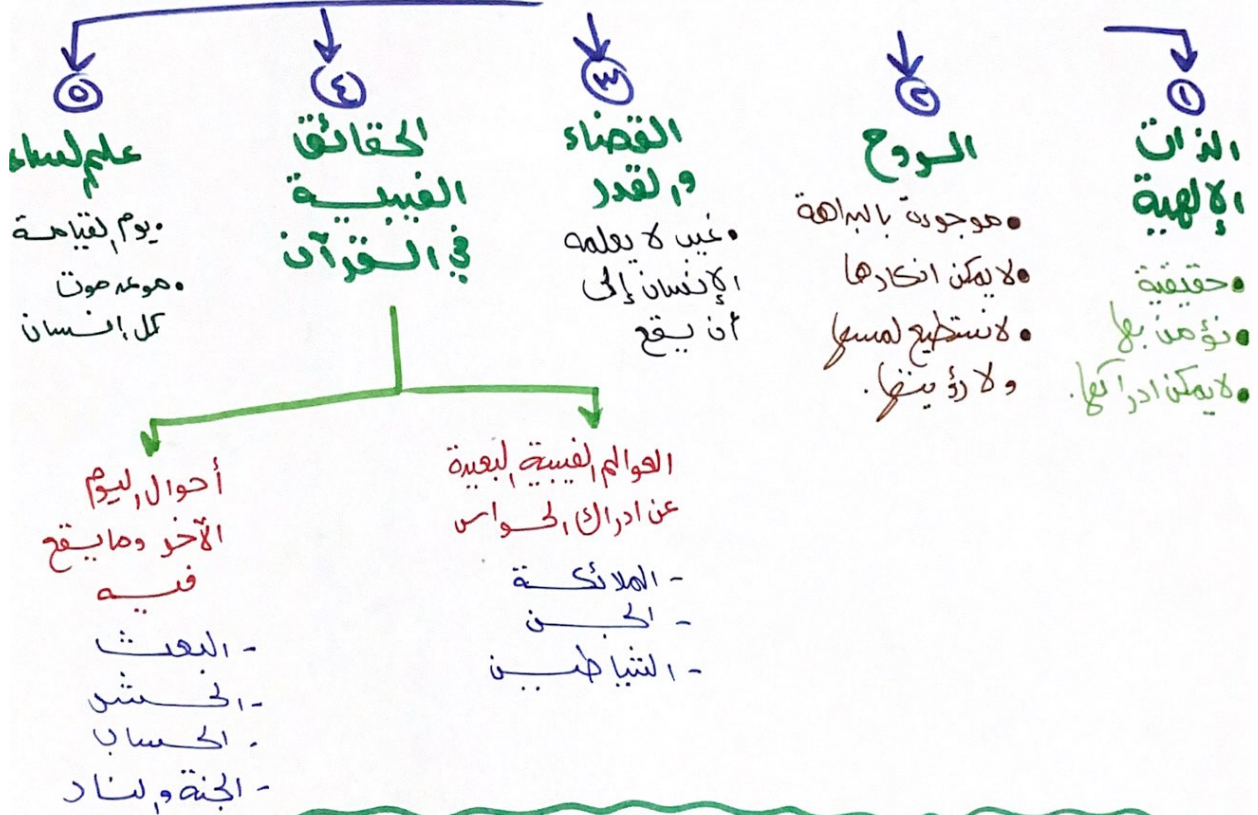 ١
الذات
الإلهية
• حقيقية
• نؤمن بها
• لا يمكن ادراكها.
٢
الروح
• موجودة بالبداهة
• لا يمكن انكارها
• لا نستطيع لمسها
ولا رؤيتها.
٣
القضاء
والقدر
• غيب لا يعلمه
الإنسان إلى
أن يقع
٤
الحقائق
الغيبية
في القرآن
العوالم الغيبية البعيدة
عن ادراك الحواس
- الملائكة
- الجن
- الشياطين
أحوال اليوم
الآخر وما يقع
فيه
- البعث
- الحشر
- الحساب
- الجنة والنار
٥
علم الساعة
• يوم القيامة
• موعد موت
كل إنسان